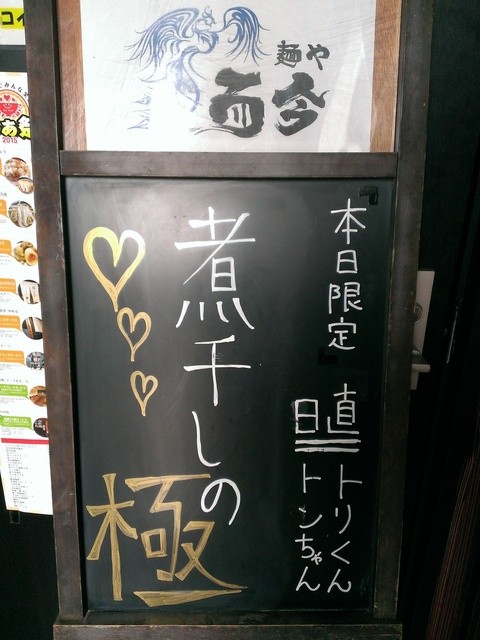 麺や
而今
本日限定
直トリくん
日トンちゃん
煮干しの
極
2015